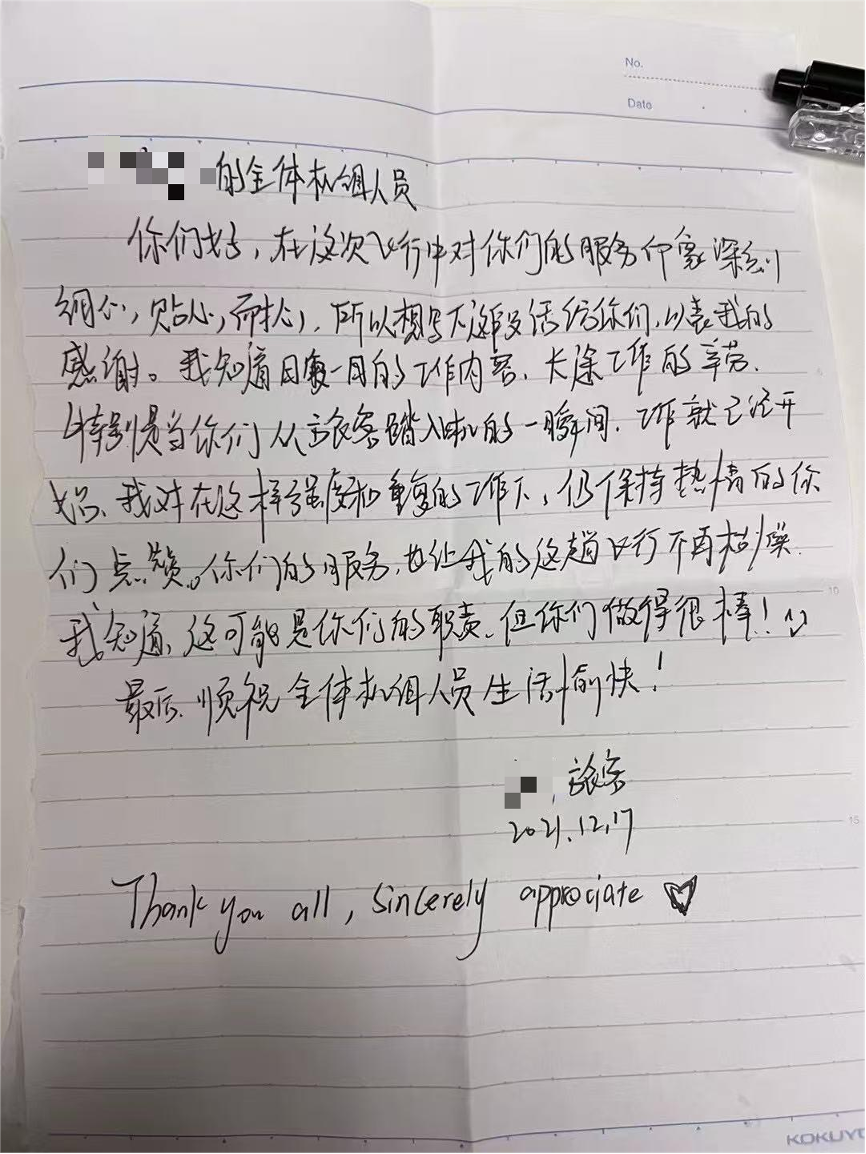 No.
Date
的全体机组人员
你们好,在这次飞行中对你们的服务印象深刻
细心,贴心,而耐心,所以想写下这段话给你们,以表我的
感谢。我知道日复一日的工作内容、长途工作的辛劳.
特别是当你们从旅客踏入机的一瞬间.工作就已经开
始、我对在这样强度和重复的工作下、仍保持热情的你
们点赞。你们的服务,也让我的这趟飞行不再枯燥.
我知道、这可能是你们的职责、但你们做得很棒!
最后、顺祝全体机组人员生活愉快!
旅客
2021.12.17
Thank you all, sincerely approciate
10
15
KOKUYO